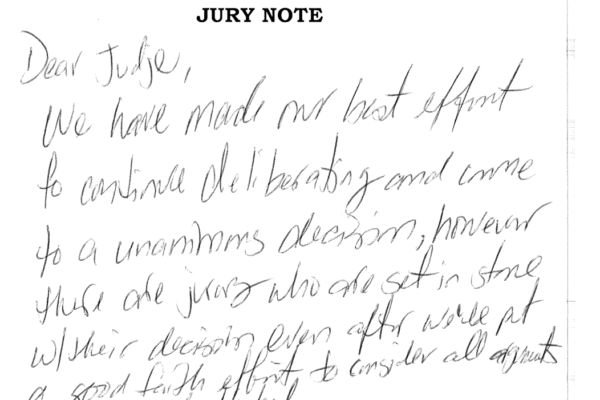 JURY NOTE
Dear Judge,
We have made our best effort
to continue deliberating and come
to a unanimous decision, however
there are jurors who are set in stone
w/their decision even after we've put
a good faith effort, to consider all arguments